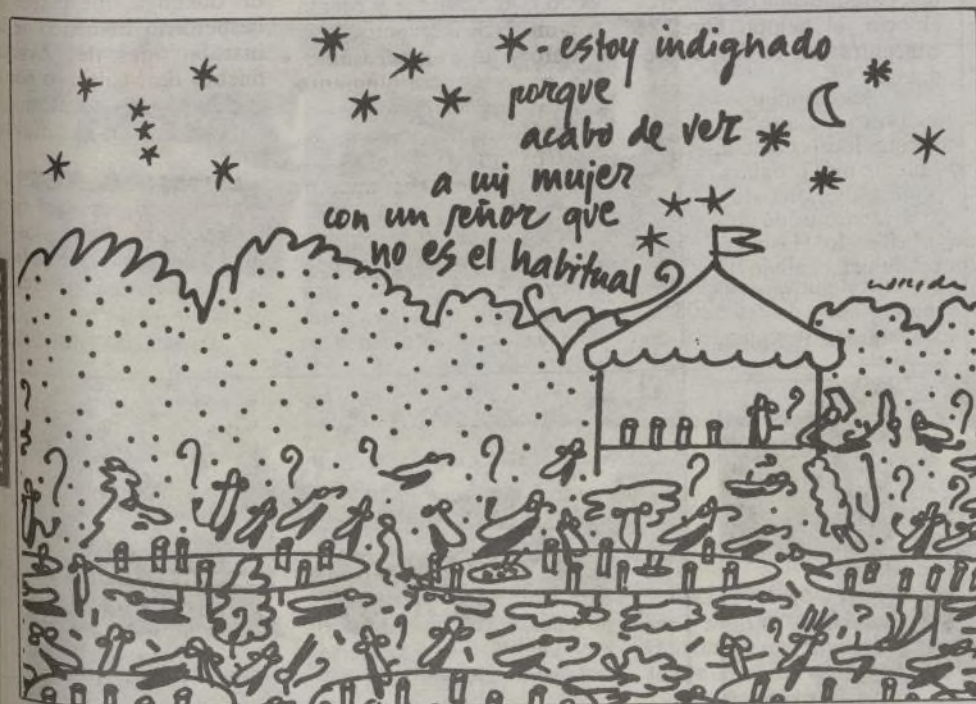 - estoy indignado
porque
acabo de ver
a mi mujer
con un señor que
no es el habitual